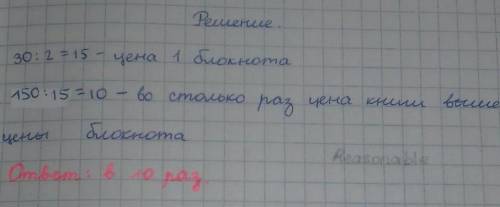 Решение.
30:2=15 - цена 1 блокнота
150:15=10 - во столько раз цена книги выше
цены блокнота
Reasonable
Ответ: в 10 раз.